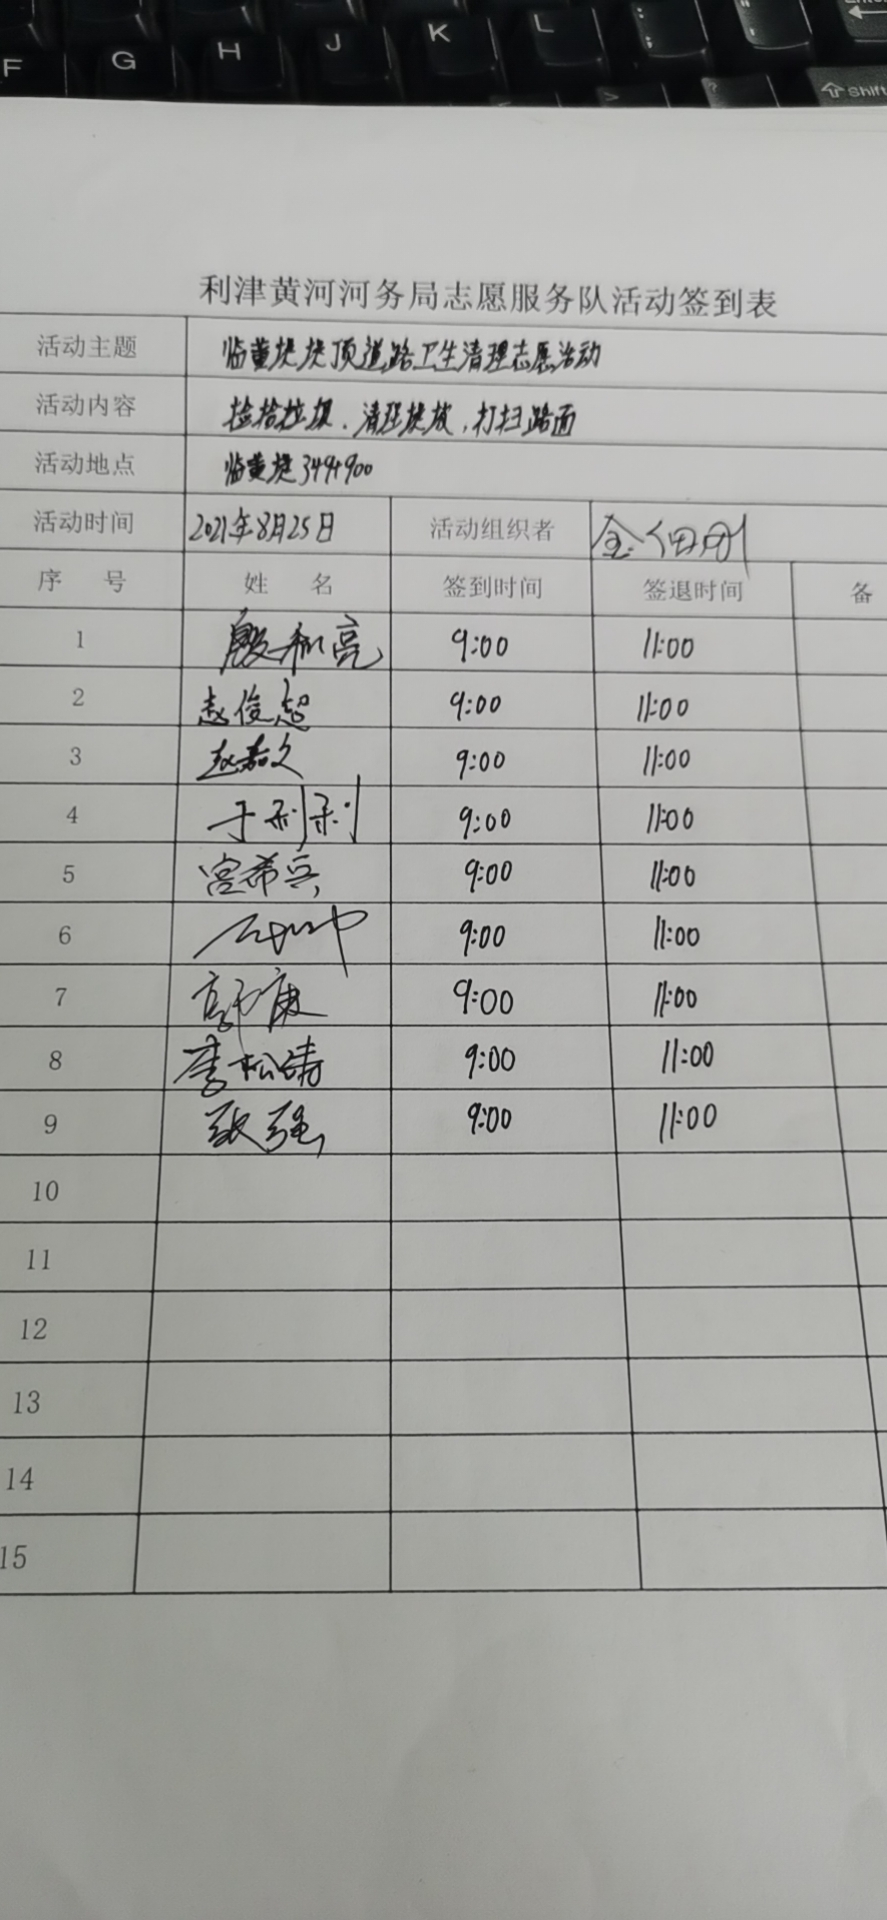 F G H J K L : ; Enter
> ? Shift
利津黄河河务局志愿服务队活动签到表
活动主题 临黄堤堤顶道路卫生清理志愿活动
活动内容 捡拾垃圾、清理堤坡,打扫路面
活动地点 临黄堤349+900
活动时间 2021年8月25日 活动组织者
序 号 姓 名 签到时间 签退时间 备
1 殷和亮 9:00 11:00
2 赵俊超 9:00 11:00
3 赵嘉文 9:00 11:00
4 于利利 9:00 11:00
5 宫希兵 9:00 11:00
6 9:00 11:00
7 9:00 11:00
8 李松涛 9:00 11:00
9 张强 9:00 11:00
10
11
12
13
14
15